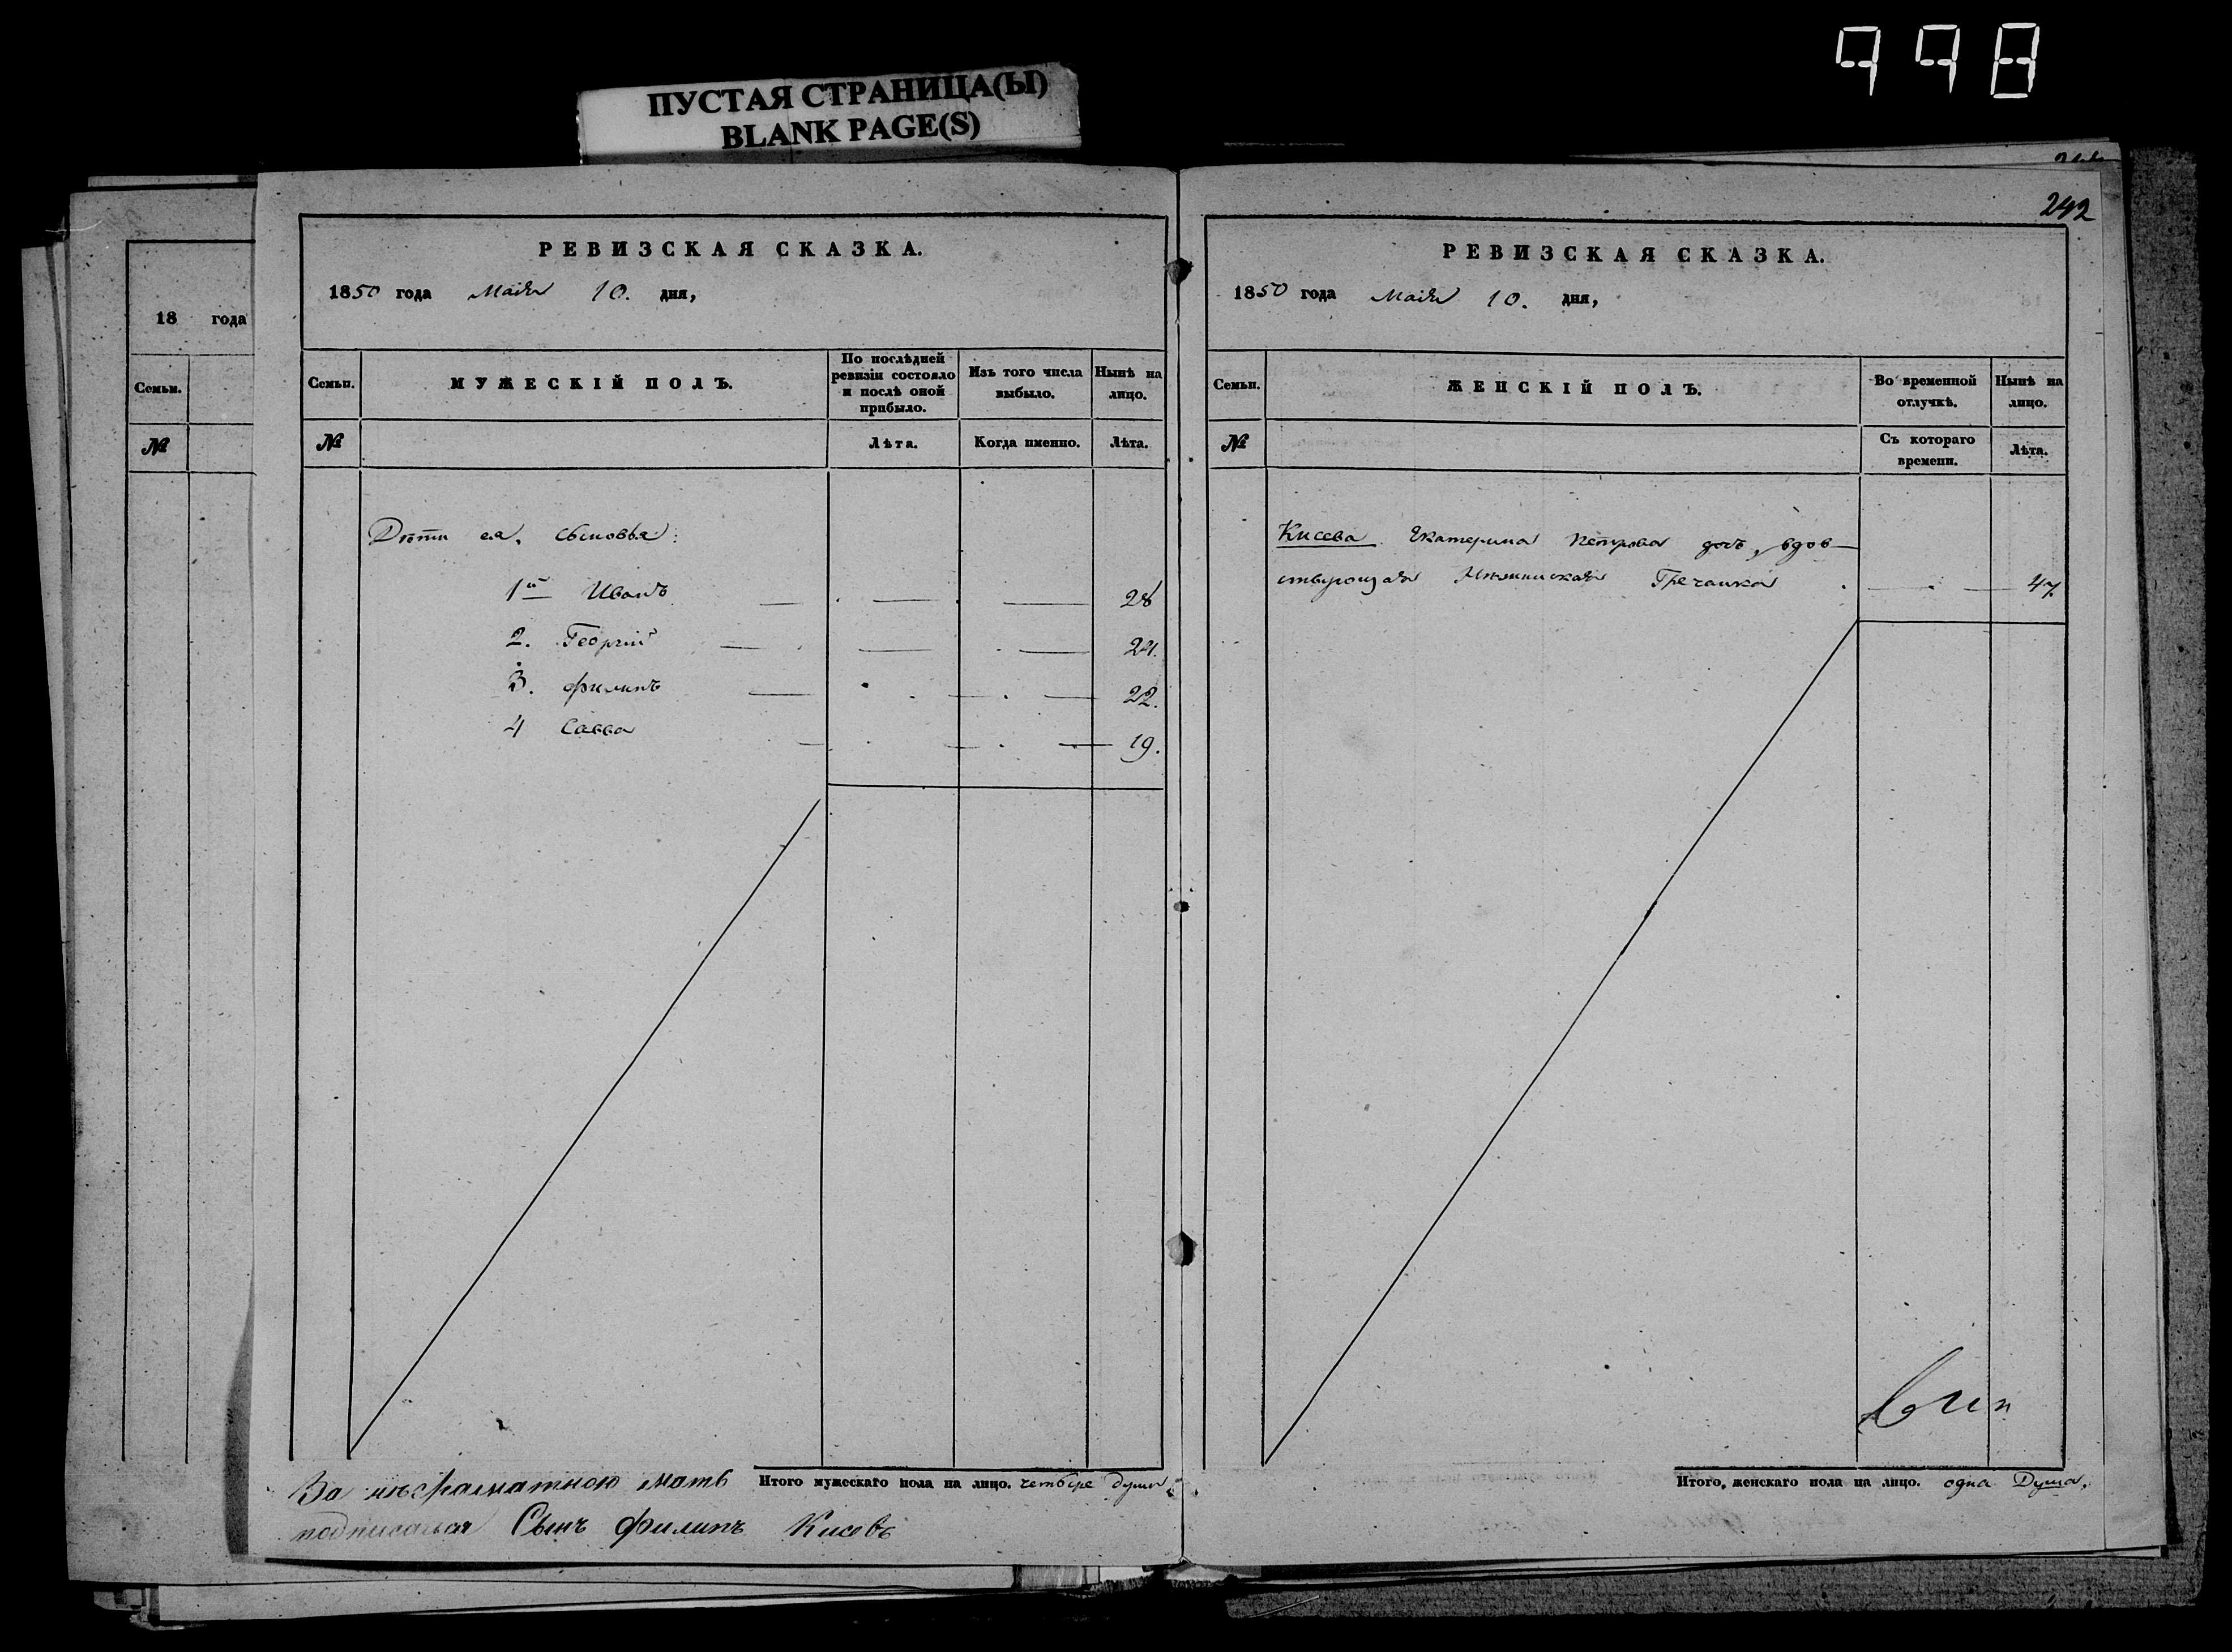 998
ПУСТАЯ СТРАНИЦА(Ы)
BLANK PAGE(S)
18 года
Семьи.
№
РЕВИЗСКАЯ СКАЗКА.
1850 года Маія 10. дня,
Семьи.
МУЖЕСКІЙ ПОЛЪ.
По послѣдней ревизіи состояло и послѣ оной прибыло.
Изъ того числа выбыло.
Нынѣ на лицо.
№
Лѣта.
Когда именно.
Лѣта.
Дѣти ея, сыновья:
1й Иванъ 28
2. Георгій 24.
3. Филипъ 22.
4 Савва 19.
Итого мужескаго пола на лицо. четыре души
За неграматною мать
подписался Сынъ Филипъ Кисевъ
242
РЕВИЗСКАЯ СКАЗКА.
1850 года Маія 10. дня,
Семьи.
ЖЕНСКІЙ ПОЛЪ.
Во временной отлучкѣ.
Нынѣ на лицо.
№
Съ котораго времени.
Лѣта.
Кисева Екатерина Петрова дочь, вдов-
ствующая Нѣжинская Гречанка 47.
Итого, женскаго пола на лицо. одна Душа.